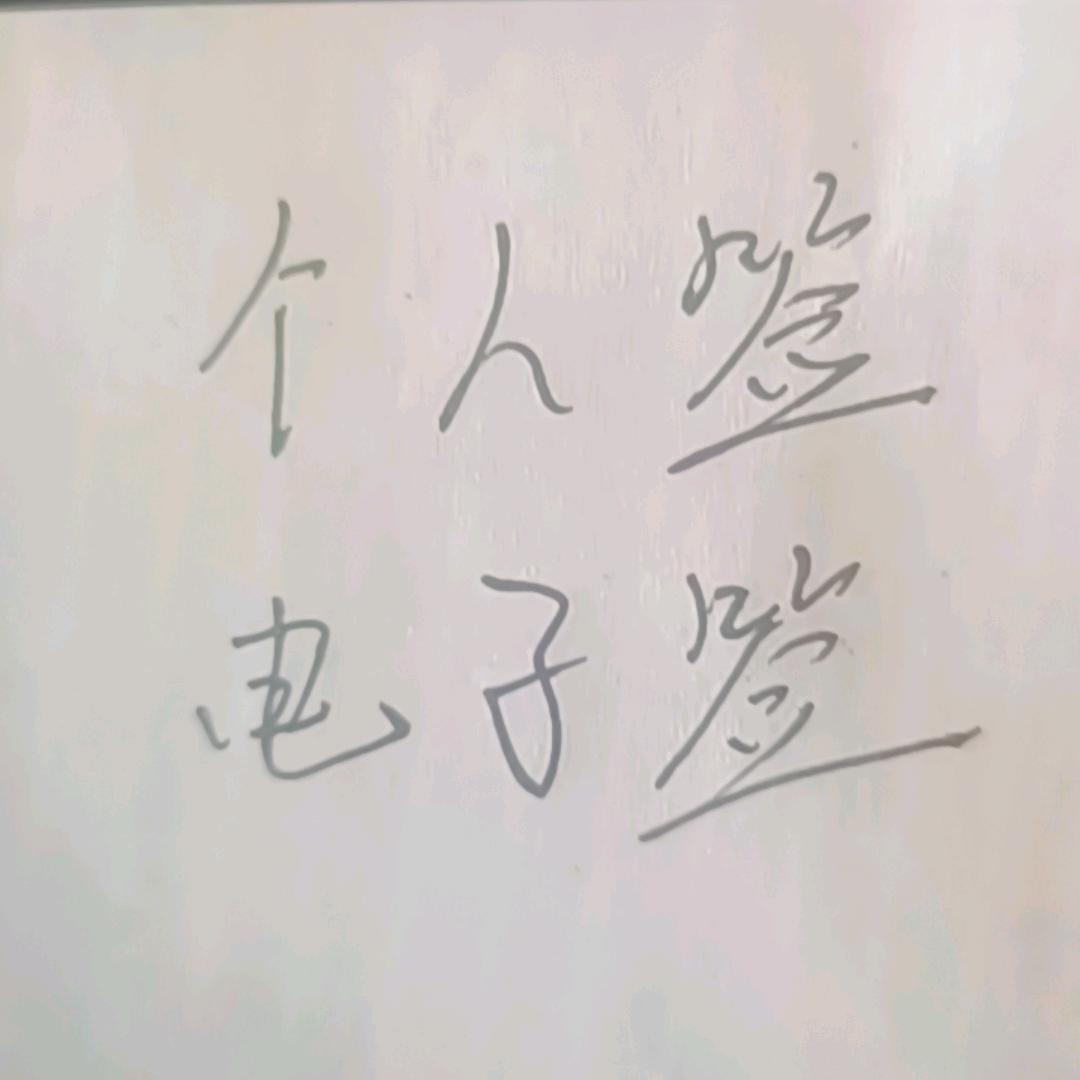 个人签
电子签